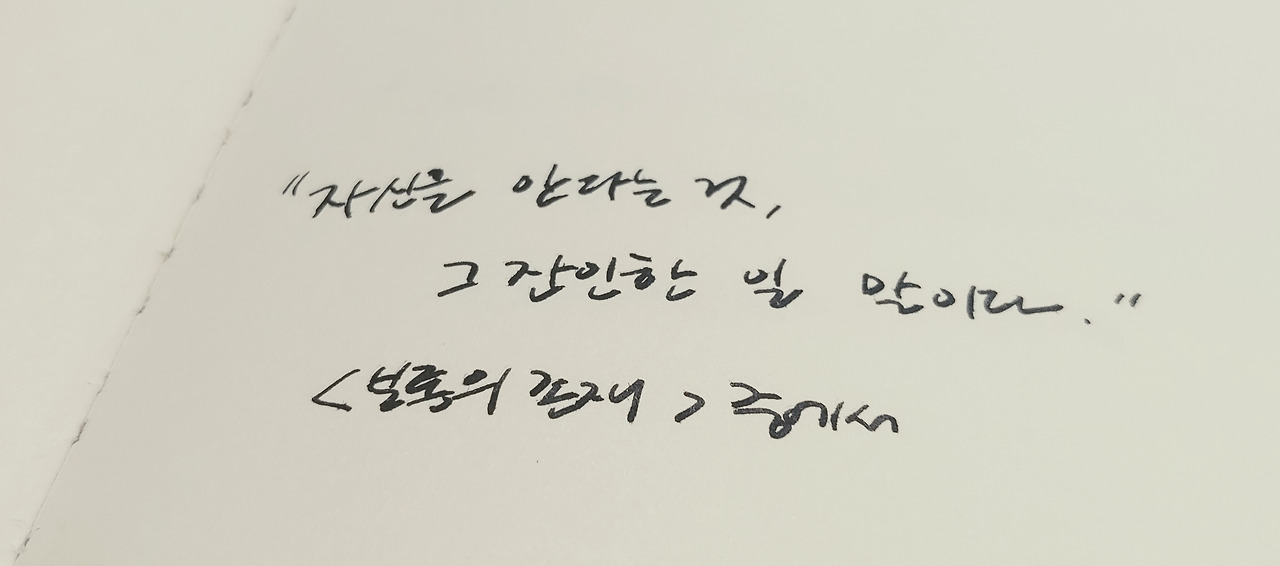 "자신을 안다는 것,
그 잔인한 일 말이다."
<보통의 존재> 중에서